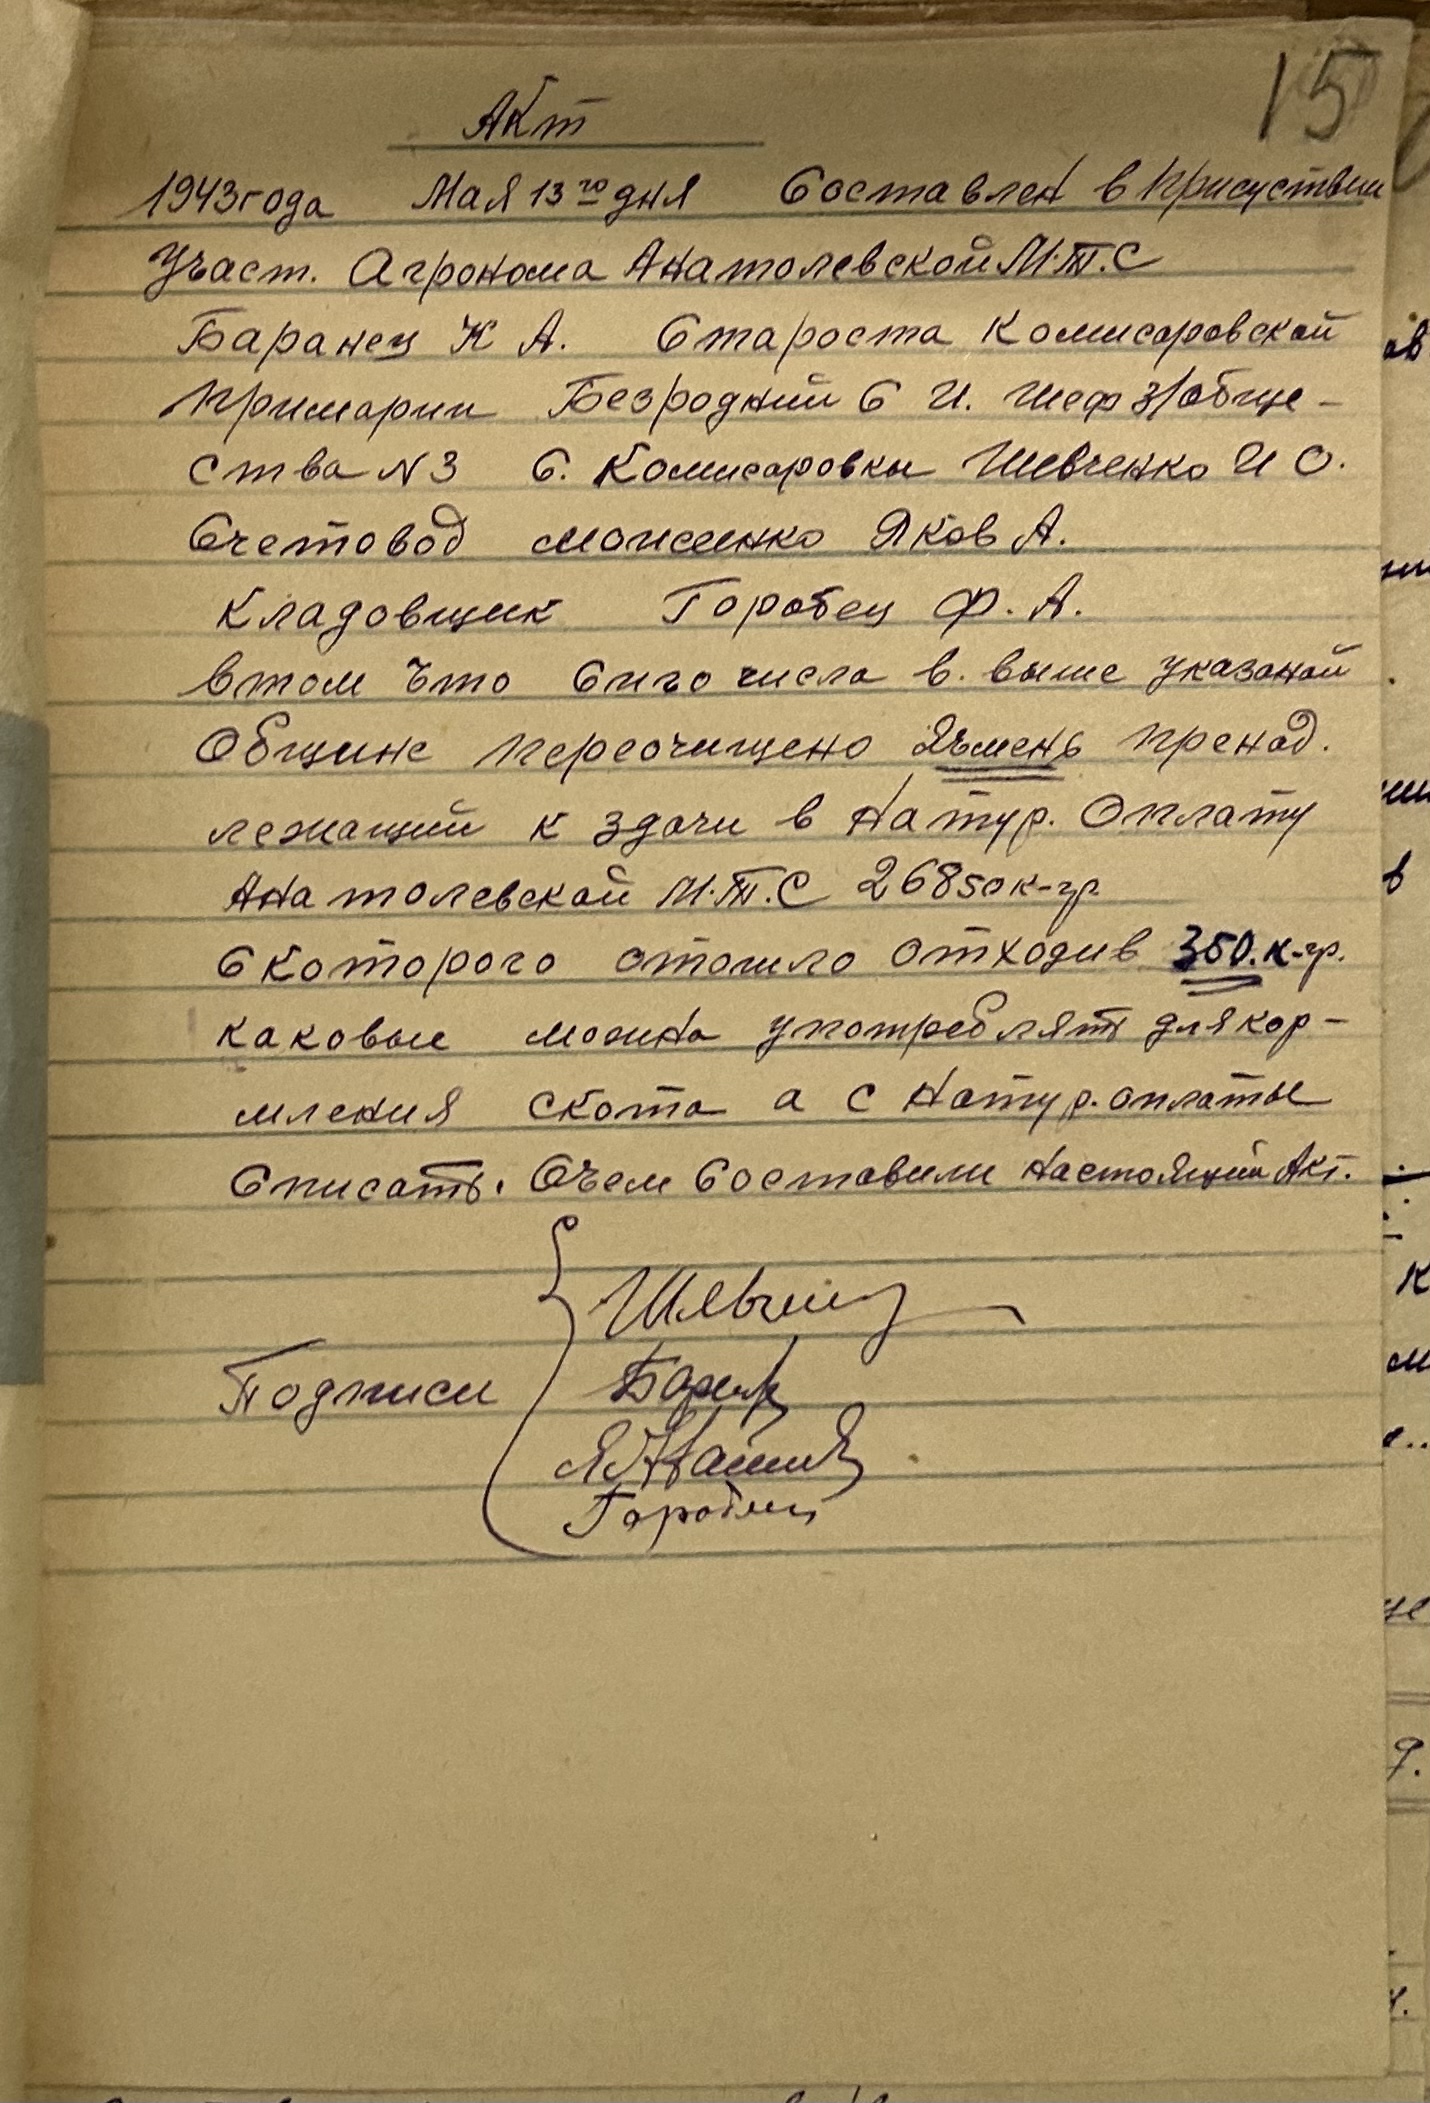 15
Акт
1943 года Мая 13го дня Составлен в присуствии
Участ. Агронома Анатолевской М.Т.С
Баранец К А. Староста Комисаровской
Примарии Безродний С И. шеф з/обще-
ства N3 С. Комисаровки Шевченко И О.
Счетовод Яков А.
Кладовщик Горобец Ф. А.
втом что Сиго числа в. выше указаной
Общине переочищено Ячмень пренад.
лежащий к здачи в Натур. Оплату
Анатолевской М.Т.С 26850 к-гр
Скоторого отошло отходив 350. к-гр.
каковые можна употреблять для кор-
мления скота а с Натур. оплаты
Списать. Очем Составили настоящий Акт.
Подписи
Горобец